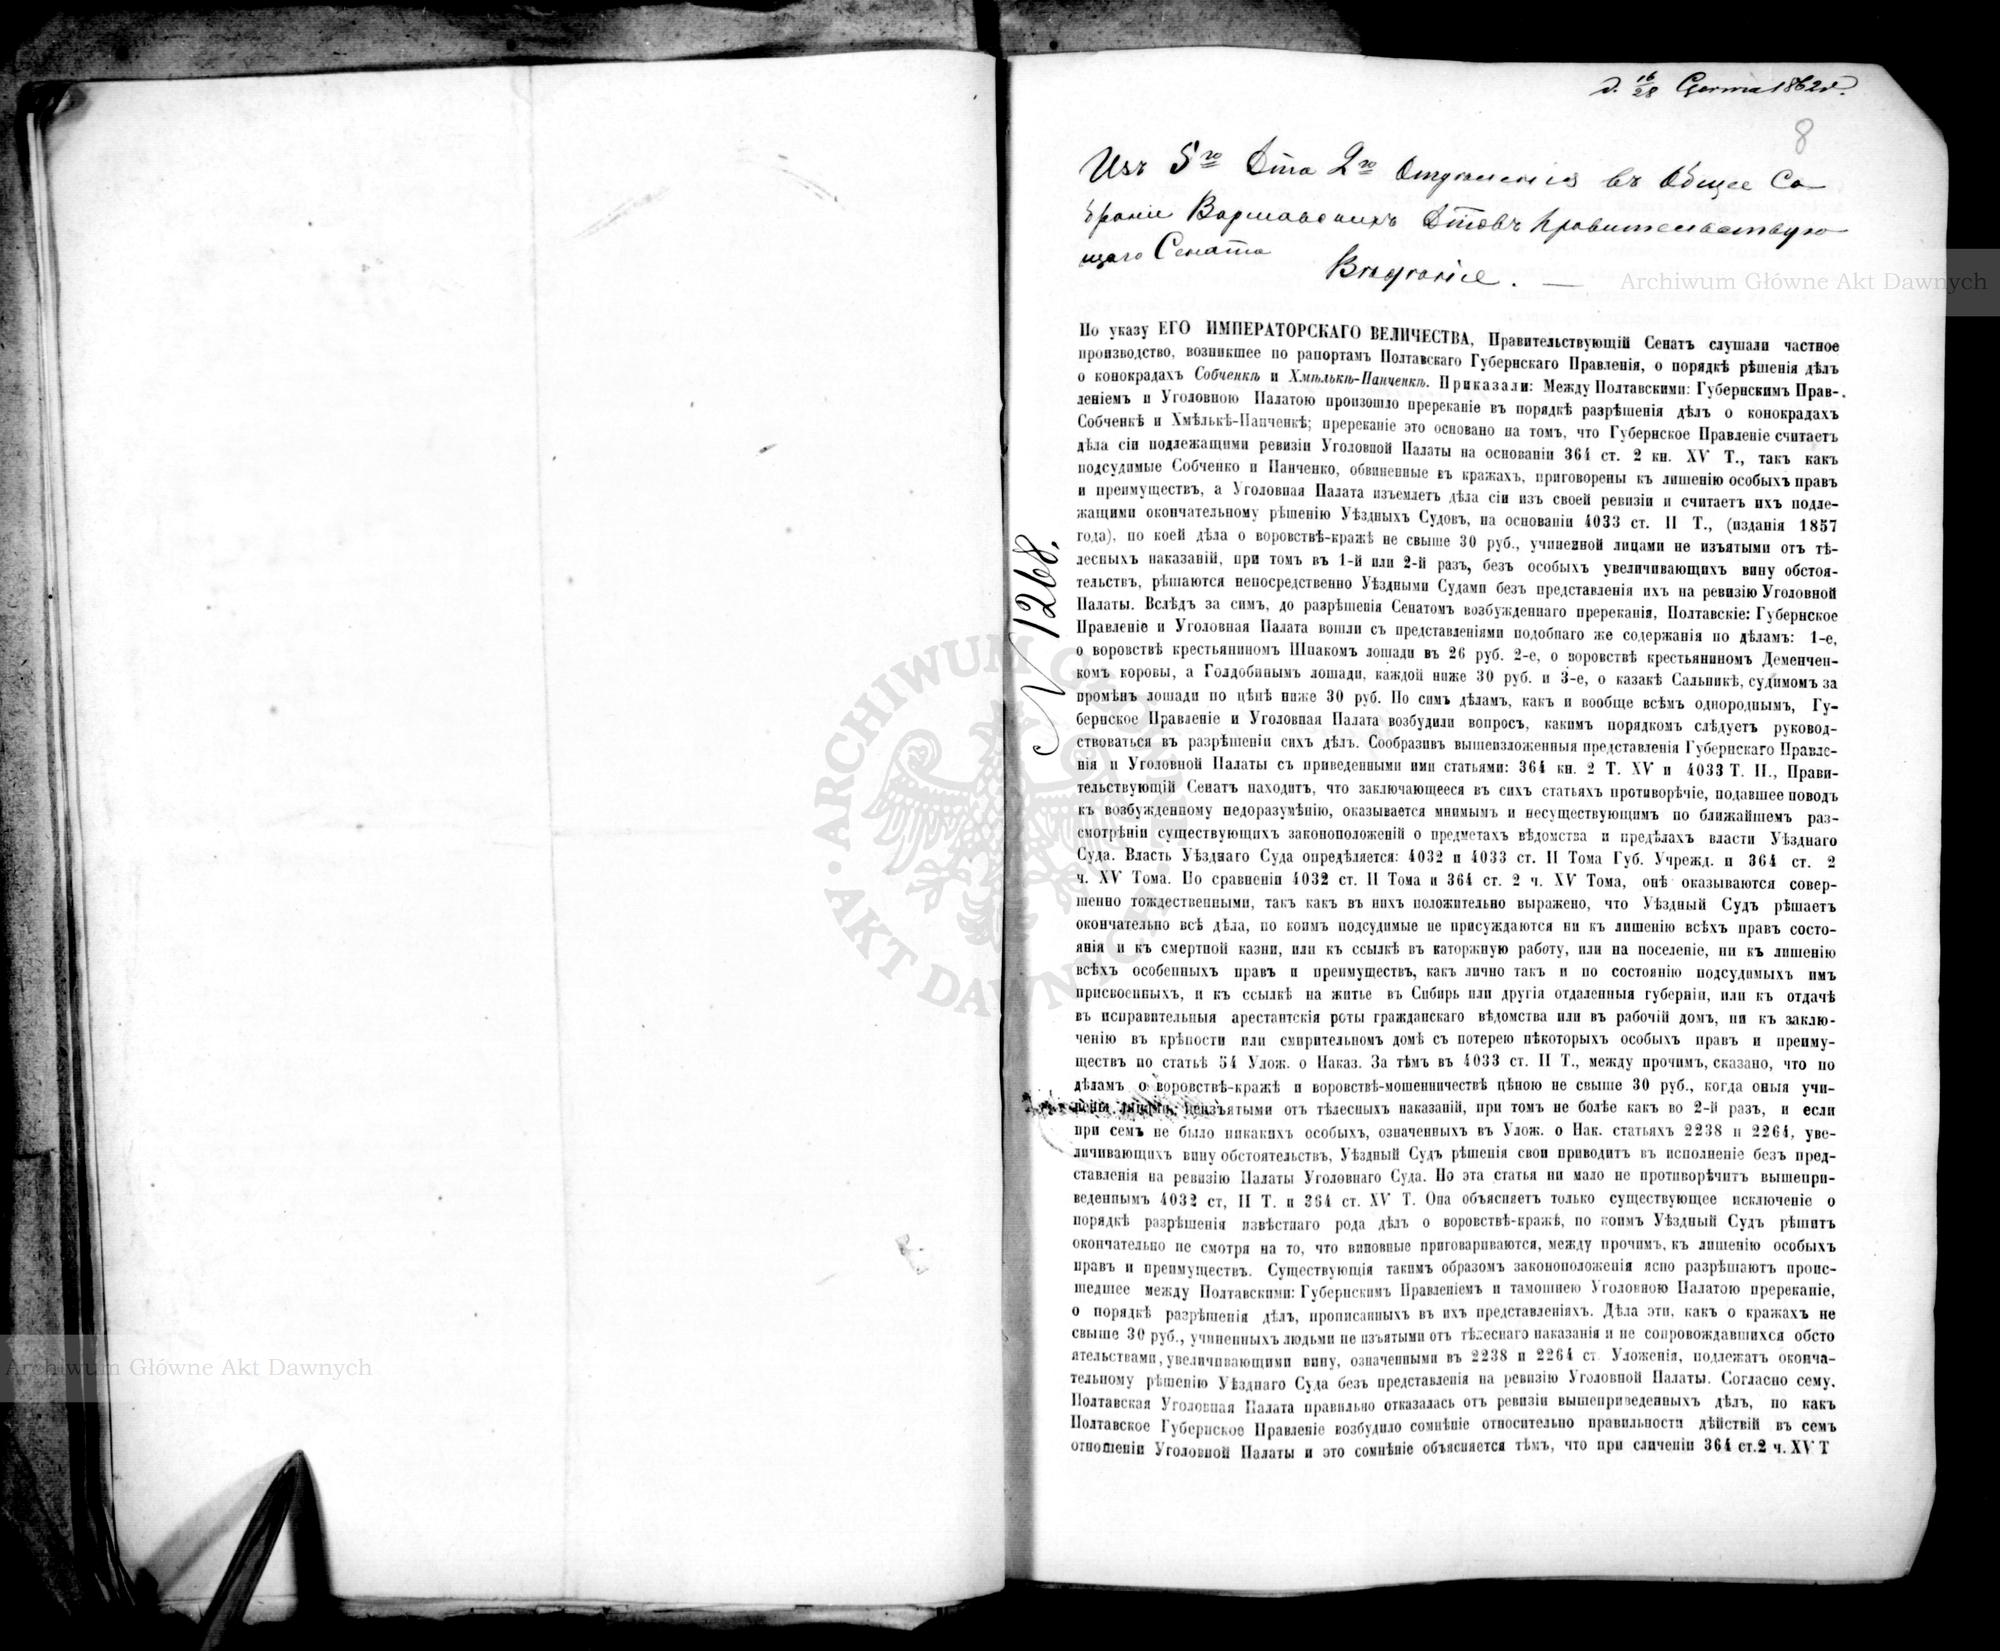 д. 16/28 Czerwca 1862 r.
8
Изъ 5го Дта 2го Отдѣленія въ Общее Со-
браніе Варшавскихъ Дтовъ Правительствую-
щаго Сената
Вѣдѣніе. —
N 1268.
По указу ЕГО ИМПЕРАТОРСКАГО ВЕЛИЧЕСТВА, Правительствующій Сенатъ слушали частное
производство, возникшее по рапортамъ Полтавскаго Губернскаго Правленія, о порядкѣ рѣшенія дѣлъ
о конокрадахъ Собченкѣ и Хмѣлькѣ-Панченкѣ. Приказали: Между Полтавскими: Губернскимъ Прав-
леніемъ и Уголовною Палатою произошло пререканіе въ порядкѣ разрѣшенія дѣлъ о конокрадахъ
Собченкѣ и Хмѣлькѣ-Панченкѣ; пререканіе это основано на томъ, что Губернское Правленіе считаетъ
дѣла сіи подлежащими ревизіи Уголовной Палаты на основаніи 364 ст. 2 кн. XV Т., такъ какъ
подсудимые Собченко и Панченко, обвиненные въ кражахъ, приговорены къ лишенію особыхъ правъ
и преимуществъ, а Уголовная Палата изъемлетъ дѣла сіи изъ своей ревизіи и считаетъ ихъ подле-
жащими окончательному рѣшенію Уѣздныхъ Судовъ, на основаніи 4033 ст. II Т., (изданія 1857
года), по коей дѣла о воровствѣ-кражѣ не свыше 30 руб., учиненной лицами не изъятыми отъ тѣ-
лесныхъ наказаній, при томъ въ 1-й или 2-й разъ, безъ особыхъ увеличивающихъ вину обстоя-
тельствъ, рѣшаются непосредственно Уѣздными Судами безъ представленія ихъ на ревизію Уголовной
Палаты. Вслѣдъ за симъ, до разрѣшенія Сенатомъ возбужденнаго пререканія, Полтавскіе: Губернское
Правленіе и Уголовная Палата вошли съ представленіями подобнаго же содержанія по дѣламъ: 1-е,
о воровствѣ крестьяниномъ Шпакомъ лошади въ 26 руб. 2-е, о воровствѣ крестьяниномъ Деменчен-
комъ коровы, а Голдобинымъ лошади, каждой ниже 30 руб. и 3-е, о казакѣ Сальникѣ, судимомъ за
промѣнъ лошади по цѣнѣ ниже 30 руб. По симъ дѣламъ, какъ и вообще всѣмъ однороднымъ, Гу-
бернское Правленіе и Уголовная Палата возбудили вопросъ, какимъ порядкомъ слѣдуетъ руковод-
ствоваться въ разрѣшеніи сихъ дѣлъ. Сообразивъ вышеизложенныя представленія Губернскаго Правле-
нія и Уголовной Палаты съ приведенными ими статьями: 364 кн. 2 Т. XV и 4033 Т. II., Прави-
тельствующій Сенатъ находитъ, что заключающееся въ сихъ статьяхъ противорѣчіе, подавшее поводъ
къ возбужденному недоразумѣнію, оказывается мнимымъ и несуществующимъ по ближайшемъ раз-
смотрѣніи существующихъ законоположеній о предметахъ вѣдомства и предѣлахъ власти Уѣзднаго
Суда. Власть Уѣзднаго Суда опредѣляется: 4032 и 4033 ст. II Тома Губ. Учрежд. и 364 ст. 2
ч. XV Тома. По сравненіи 4032 ст. II Тома и 364 ст. 2 ч. XV Тома, онѣ оказываются совер-
шенно тождественными, такъ какъ въ нихъ положительно выражено, что Уѣздный Судъ рѣшаетъ
окончательно всѣ дѣла, по коимъ подсудимые не присуждаются ни къ лишенію всѣхъ правъ состо-
янія и къ смертной казни, или къ ссылкѣ въ каторжную работу, или на поселеніе, ни къ лишенію
всѣхъ особенныхъ правъ и преимуществъ, какъ лично такъ и по состоянію подсудимыхъ имъ
присвоенныхъ, и къ ссылкѣ на житье въ Сибирь или другія отдаленныя губерніи, или къ отдачѣ
въ исправительныя арестантскія роты гражданскаго вѣдомства или въ рабочій домъ, ни къ заклю-
ченію въ крѣпости или смирительномъ домѣ съ потерею нѣкоторыхъ особыхъ правъ и преиму-
ществъ по статьѣ 54 Улож. о Наказ. За тѣмъ въ 4033 ст. II Т., между прочимъ, сказано, что по
дѣламъ о воровствѣ-кражѣ и воровствѣ-мошенничествѣ цѣною не свыше 30 руб., когда оныя учи-
нены лицами, неизъятыми отъ тѣлесныхъ наказаній, при томъ не болѣе какъ во 2-й разъ, и если
при семъ не было никакихъ особыхъ, означенныхъ въ Улож. о Нак. статьяхъ 2238 и 2264, уве-
личивающихъ вину обстоятельствъ, Уѣздный Судъ рѣшенія свои приводитъ въ исполненіе безъ пред-
ставленія на ревизію Палаты Уголовнаго Суда. Но эта статья ни мало не противорѣчитъ вышепри-
веденнымъ 4032 ст, II Т. и 364 ст. XV Т. Она объясняетъ только существующее исключеніе о
порядкѣ разрѣшенія извѣстнаго рода дѣлъ о воровствѣ-кражѣ, по коимъ Уѣздный Судъ рѣшитъ
окончательно не смотря на то, что виновные приговариваются, между прочимъ, къ лишенію особыхъ
правъ и преимуществъ. Существующія такимъ образомъ законоположенія ясно разрѣшаютъ проис-
шедшее между Полтавскими: Губернскимъ Правленіемъ и тамошнею Уголовною Палатою пререканіе,
о порядкѣ разрѣшенія дѣлъ, прописанныхъ въ ихъ представленіяхъ. Дѣла эти, какъ о кражахъ не
свыше 30 руб., учиненныхъ людьми не изъятыми отъ тѣлеснаго наказанія и не сопровождавшихся обсто
ятельствами, увеличивающими вину, означенными въ 2238 и 2264 ст. Уложенія, подлежатъ оконча-
тельному рѣшенію Уѣзднаго Суда безъ представленія на ревизію Уголовной Палаты. Согласно сему,
Полтавская Уголовная Палата правильно отказалась отъ ревизіи вышеприведенныхъ дѣлъ, но какъ
Полтавское Губернское Правленіе возбудило сомнѣніе относительно правильности дѣйствій въ семъ
отношеніи Уголовной Палаты и это сомнѣніе объясняется тѣмъ, что при сличеніи 364 ст. 2 ч. XV Т
Archiwum Główne Akt Dawnych
ARCHIWUM GŁÓWNE AKT DAWNYCH
Archiwum Główne Akt Dawnych